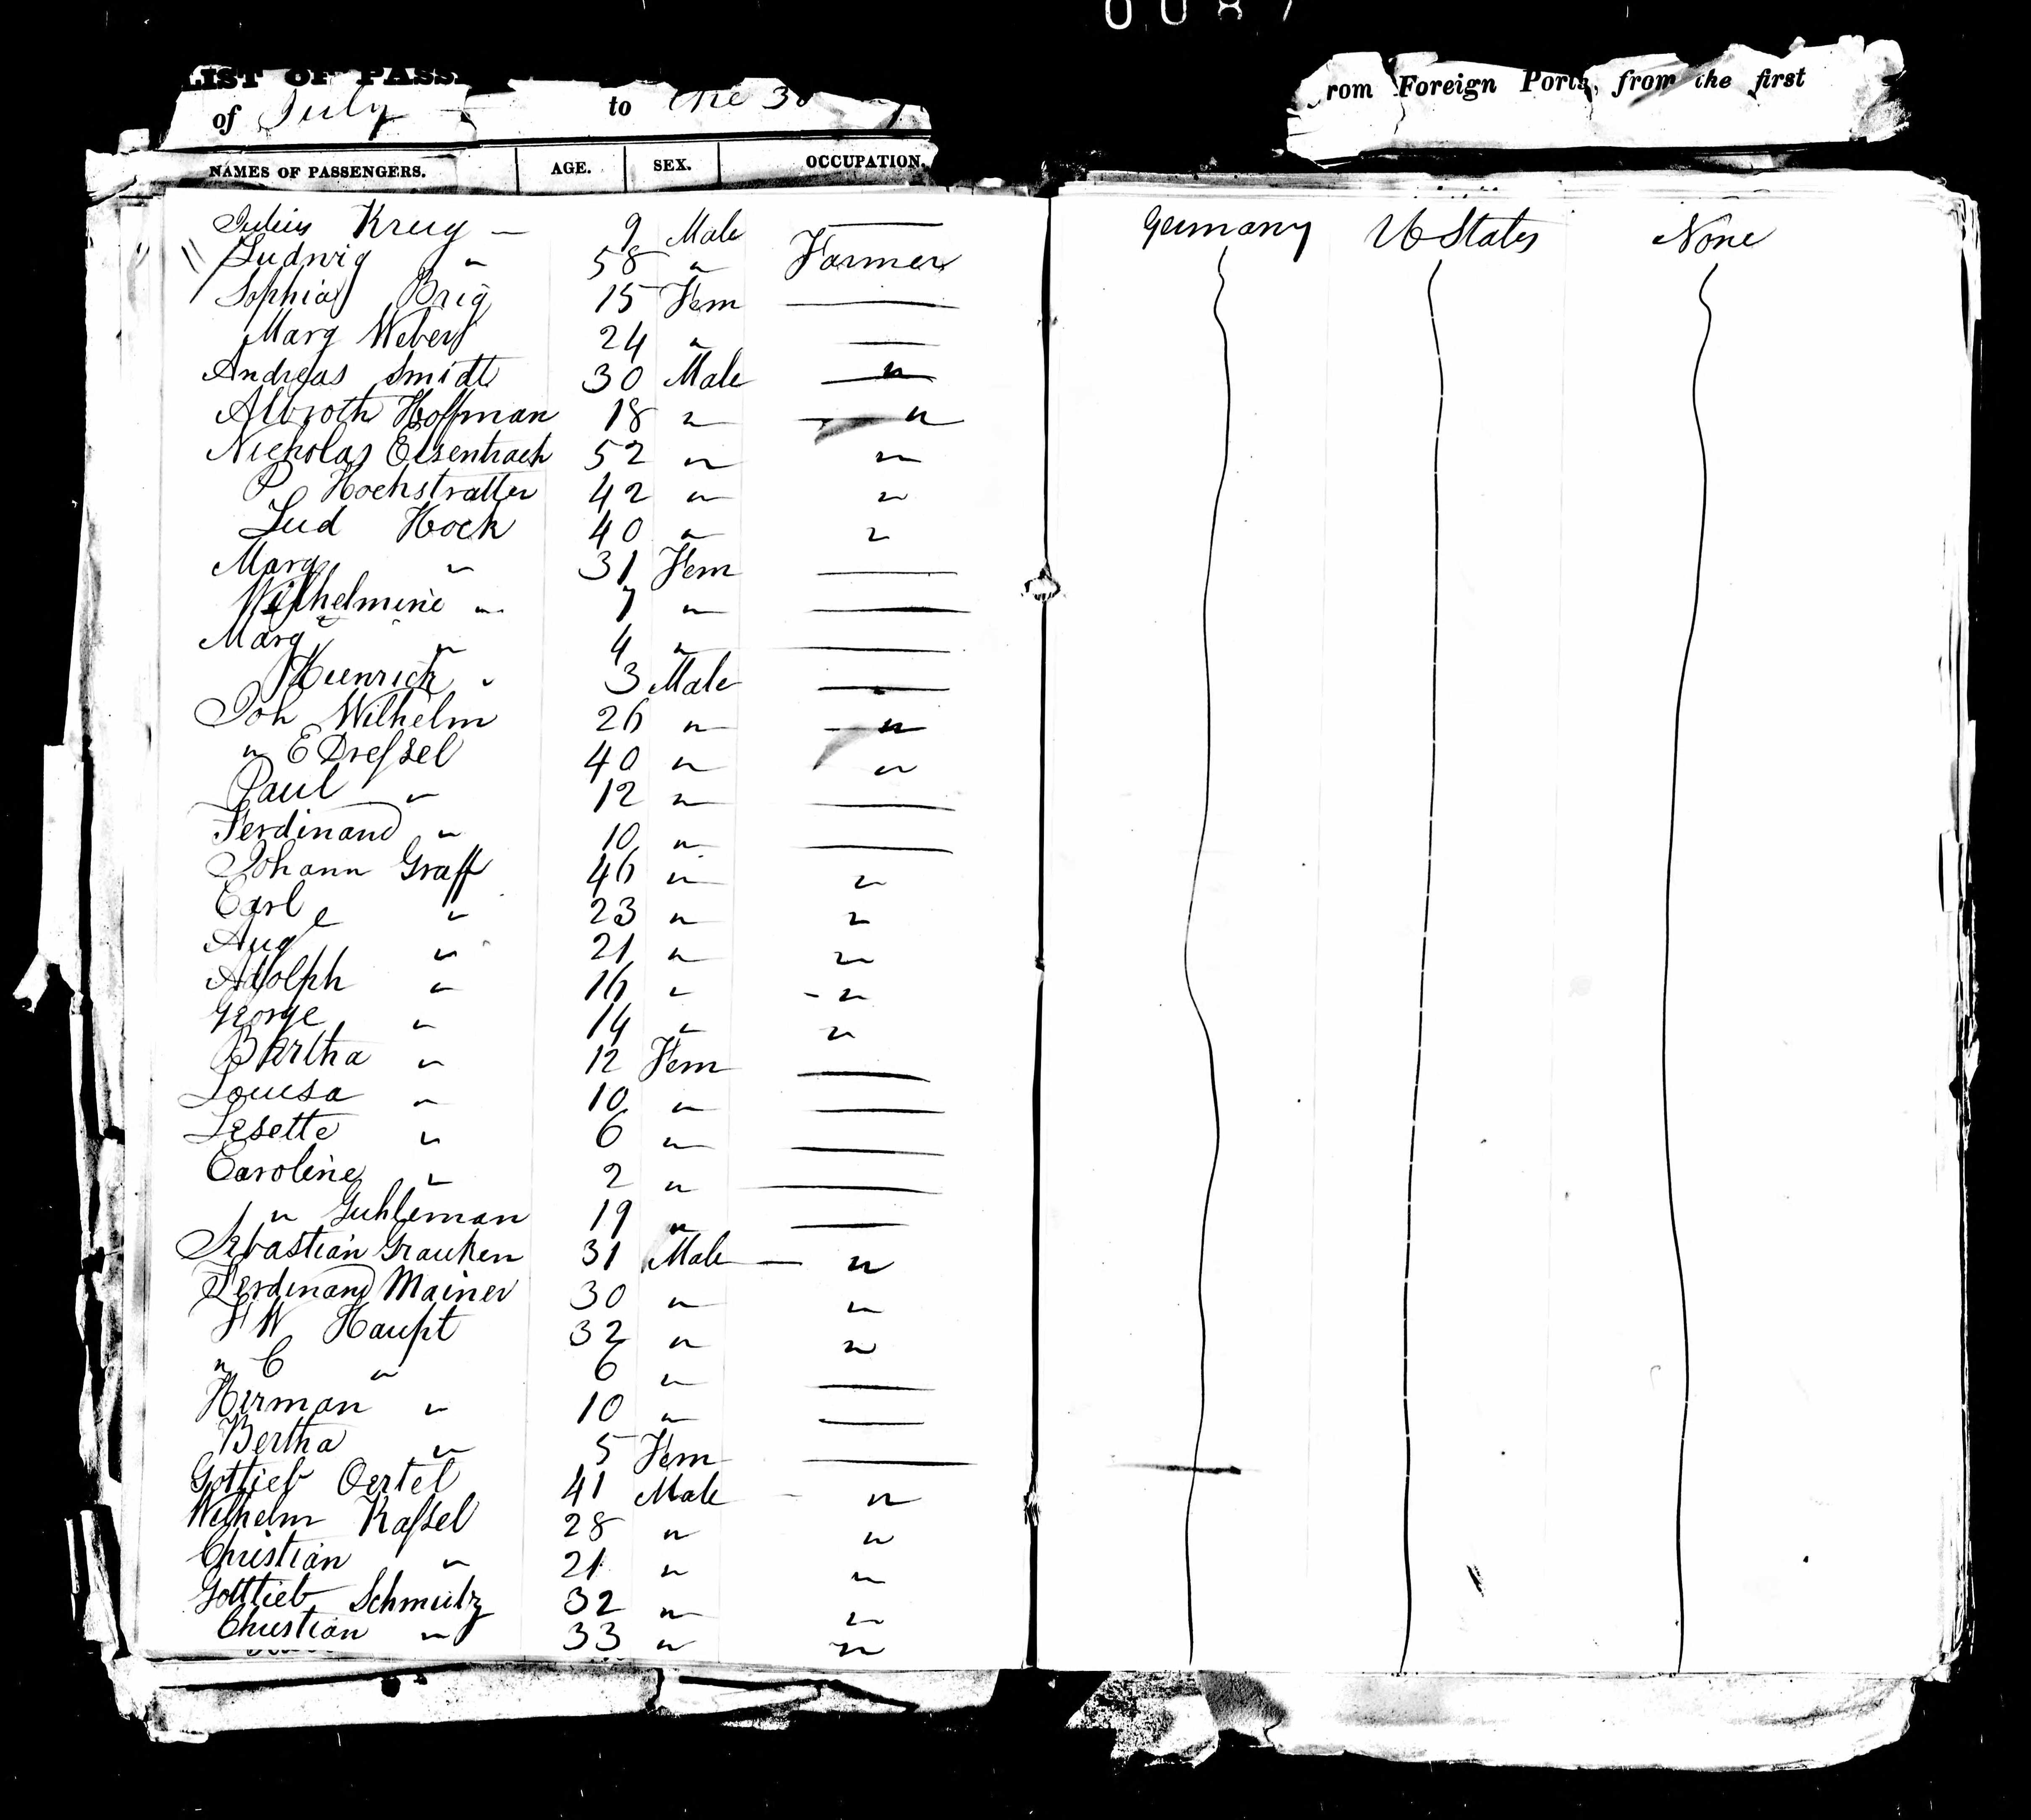 0087
LIST OF PASS
of July to the 30
rom Foreign Ports, from the first
NAMES OF PASSENGERS. AGE. SEX. OCCUPATION.
Julius Krug — 9 Male — Germany U States None
Ludwig " 58 " Farmer
Sophia Brig 15 Fem —
Marg Weber 24 " —
Andreas Smidt 30 Male "
Albroth Hoffman 18 " "
Nicholas Eisentrach 52 " "
P Hochstratter 42 " "
Lud Hock 40 " "
Marg " 31 Fem —
Wilhelmine " 7 " —
Marg " 4 " —
Hienrich " 3 Male —
Joh Wilhelm 26 " "
" E Dressel 40 " "
Paul " 12 " —
Ferdinand " 10 " —
Johann Graff 46 " "
Carl " 23 " "
Auge " 21 " "
Adolph " 16 " "
George " 14 " "
Bertha " 12 Fem —
Louisa " 10 " —
Lesette " 6 " —
Caroline " 2 " —
" Guhleman 19 " —
Sebastian Grauken 31 Male "
Ferdinand Mainer 30 " "
F W Haupt 32 " "
" C " 6 " —
Herman " 10 " —
Bertha " 5 Fem —
Gottlieb Oertel 41 Male "
Wilhelm Kassel 28 " "
Christian " 21 " "
Gottlieb Schmutz 32 " "
Christian " 33 " "